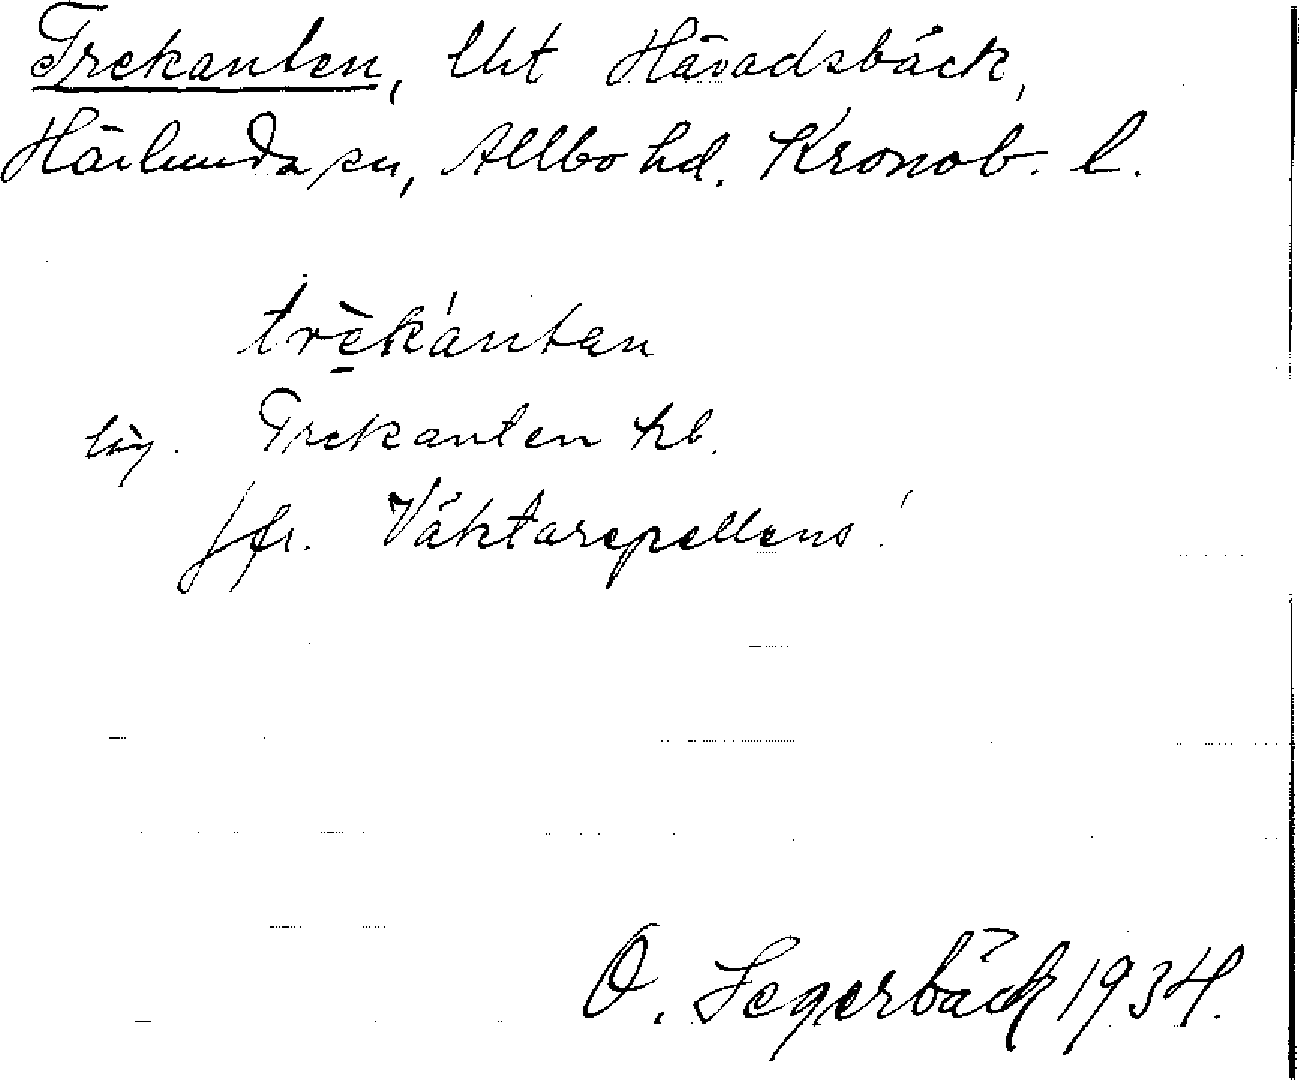 Trekanten, lht Hävadsbäck,
Härlunda sn, Allbo hd. Kronob. l.
trèkántan
Trekanten hb.
jfr. Väktarepellens!
O. Segerbäck 1934.